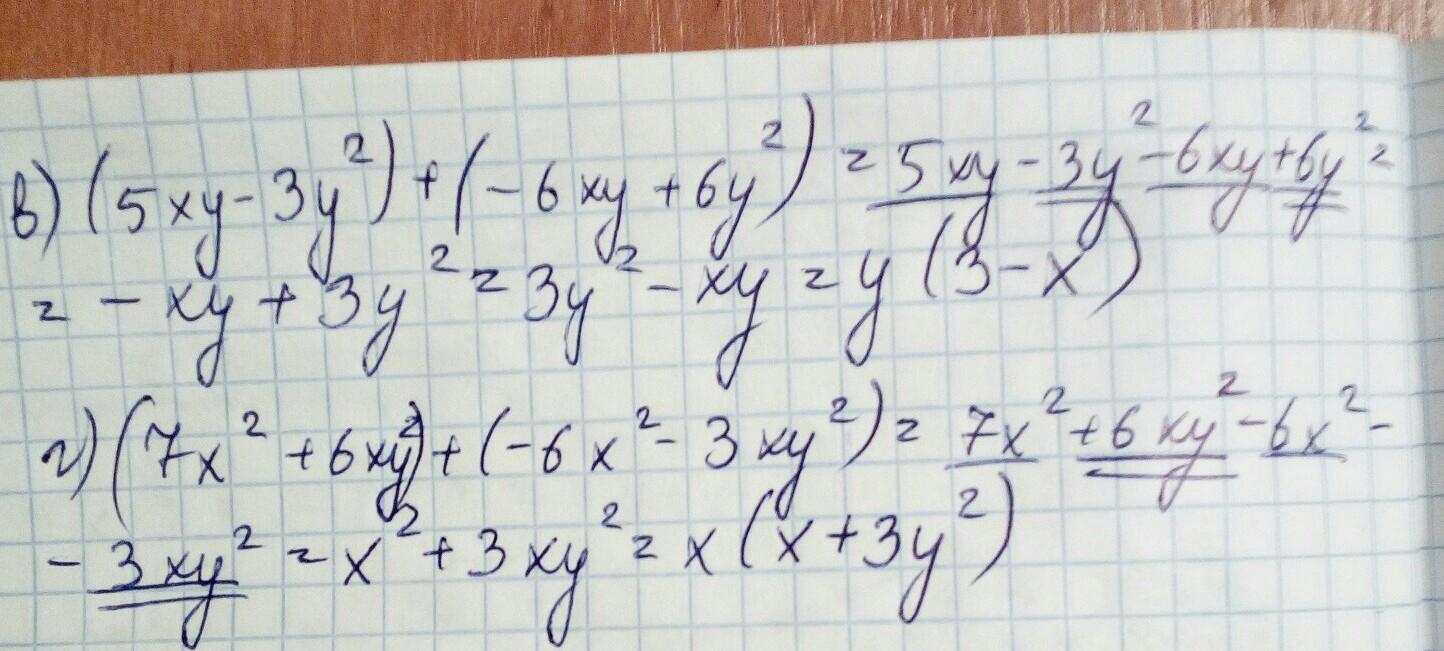 в) (5xy - 3y²) + (-6xy + 6y²) = 5xy - 3y² - 6xy + 6y² =
= - xy + 3y² = 3y² - xy = y (3 - x)
г) (7x² + 6xy²) + (-6x² - 3xy²) = 7x² + 6xy² - 6x² -
- 3xy² = x² + 3xy² = x (x + 3y²)